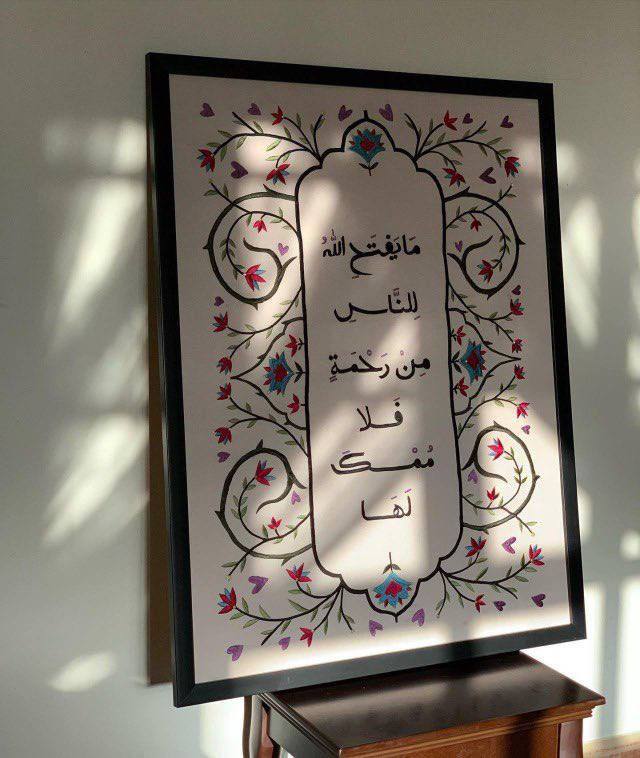 مَا يَفتَحِ اللهُ
لِلنَّاسِ
مِنْ رَحْمَةٍ
فَلا
مُمْسكَ
لَهَا